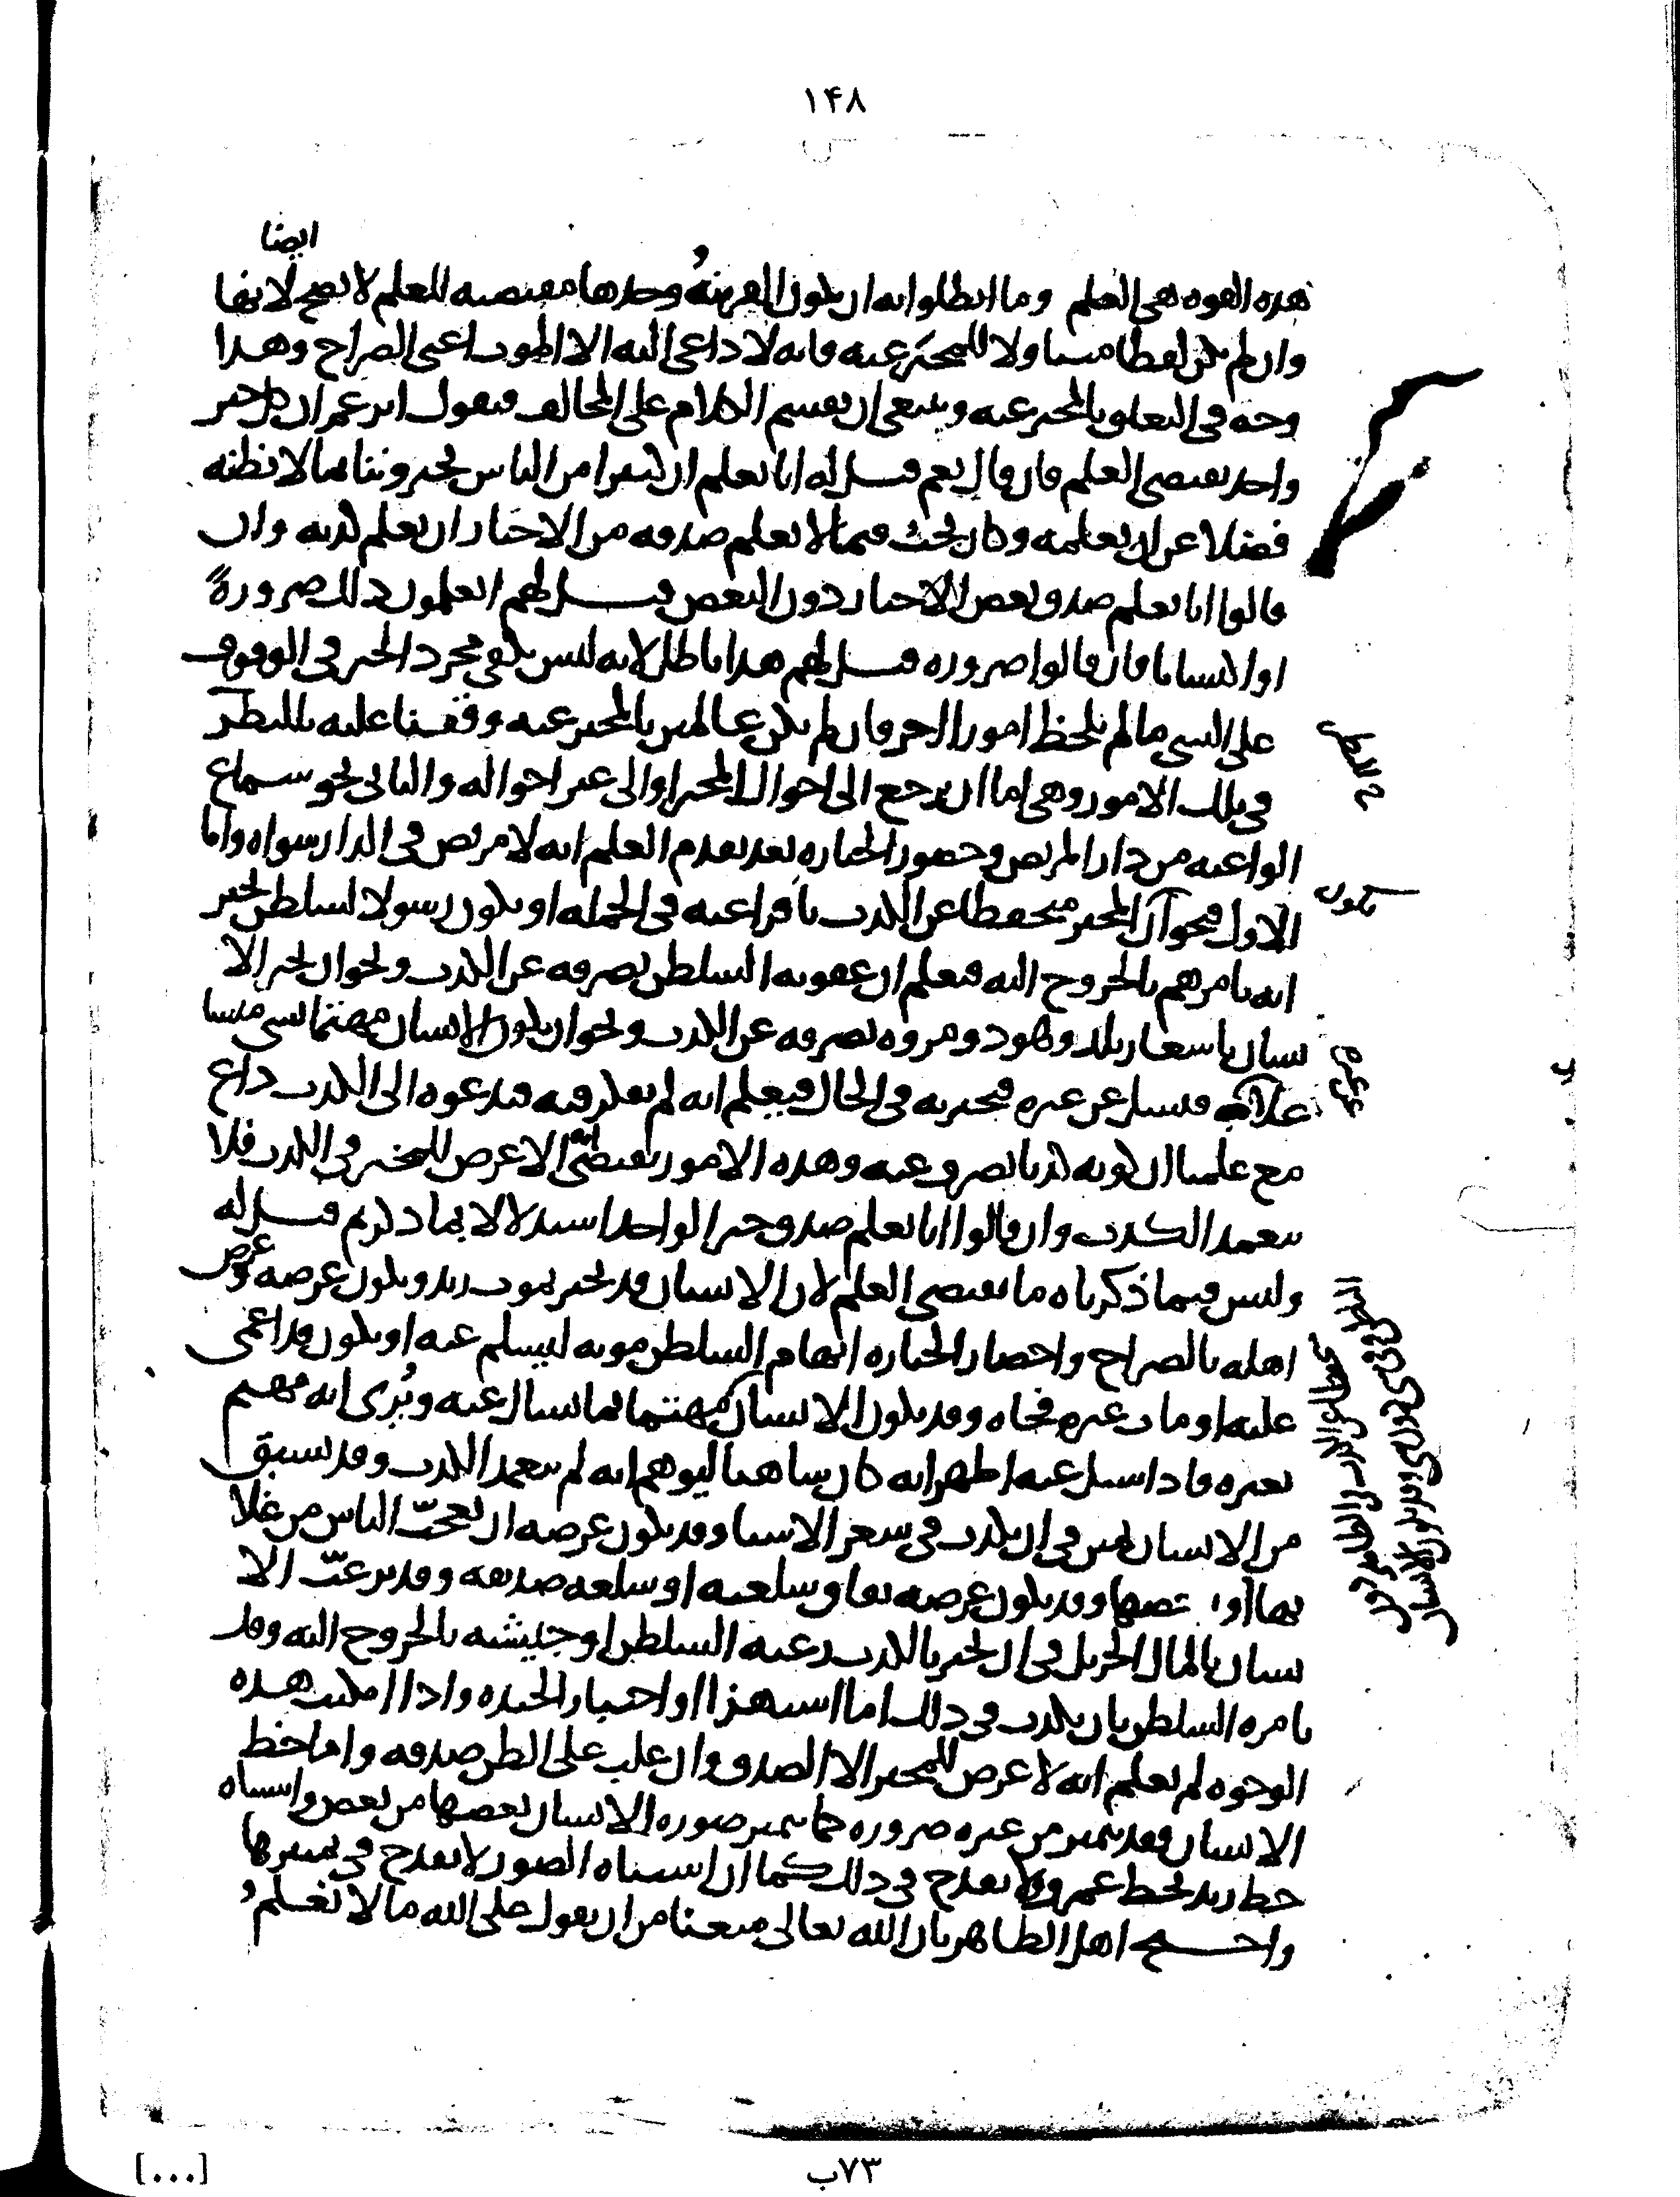 ۱۴۸
ايضا
هذه القوه هى العلم وما ابطلوا به ان يكون القرينة وحدها مقتضيه للعلم لا يصح لانها
وان لم يكن لفظا متناولا للمخبر عنه فانه لا داعى اليه الا الموت اعنى الصراخ وهذا
وجه فى التعلق بالمخبر عنه وينبغى ان يقسم الكلام على المخالف فيقول ابن عمران كل خبر
واحد يقتضى العلم فان قال نعم قيل له انا نعلم ان كثيرا من الناس يخبروننا بما لا نظنه
فضلا عن ان نعلمه وكان يجب فيما لا نعلم صدقه من الاخبار ان نعلم كذبه وان
قالوا انا نعلم صدق بعض الاخبار دون البعض قيل لهم اتعلمون ذلك ضرورةً
او اكتسابا فان قالوا ضروره قيل لهم هذا باطل لانه ليس يكفى مجرد الخبر فى الوقوف
على الشى ما لم يلحظ امورا اخر فان لم نكن عالمين بالمخبر عنه وقفنا عليه بالنظر
فى تلك الامور وهى اما ان يرجع الى احوال المخبر او الى غير احواله والثانى نحو سماع
الواعيه من دار المريض وحضور الجنازه بعد تقدم العلم انه لا مريض فى الدار سواه واما
الاول فنحو ان المخبر متحفظا عن الكذب نافرا عنه فى الجمله او يكون رسولا لسلطن يخبر
يكون
انه يامرهم بالخروج اليه فيعلم ان عقوبه السلطن تصرفه عن الكذب ونحو ان يخبر الا
نسان باسعار بلده وهو ذو مروه تصرفه عن الكذب ونحو ان يكون الانسان مهتما بشى متشا
غلا به فيسل عن غيره فيخبر به فى الحال فيعلم انه لم يفكر فيه فيدعوه الى الكذب داع
عن غيره
مع علمنا ان كونه كذبا يصرف عنه وهذه الامور تقتضى انه لا غرض للمخبر فى الكذب فلا
يتعمد الكذب وان قالوا انا نعلم صدق خبر الواحد استدلالا بما ذكرتم قيل له
وليس فيما ذكرناه ما يقتضى العلم لان الانسان قد يخبر بموت زيد ويكون غرضه وغرض
اهله بالصراخ واحضار الجنازه ايهام السلطن موته ليسلم عنه او يكون قد اغمى
عليه او مات غيره فجاه وقد يكون الانسان مهتما بما يسال عنه ويُرى انه مهتم
بغيره فاذا سئل عنه اظهر انه كان ساهيا ليوهم انه لم يتعمد الكذب وقد سبق
من الانسان يمين فى ان يكذب فى سعر الاشيا وقد يكون غرضه ان يعجب الناس من غلا
ئها او رخصها وقد يكون غرضه نفاق سلعته او سلعه صديقه وقد يرغّب الا
نسان بالمال الجزيل فى ان يخبر بالكذب رغبه السلطن او جيشه بالخروج اليه وقد
يامره السلطن بان يكذب فى ذلك اما استهزاا او اختبارا لجنده واذا امكنت هذه
الوجوه لم نعلم انه لا غرض للمخبر الا الصدق وان غلب على الظن صدقه واما خط
الانسان فقد يتميز من غيره ضروره كما يتميز صوره الانسان بعضها من بعض واشتباه
خط زيد بخط عمرو لا يقدح فى ذلك كما ان اشتباه الصور لا يقدح فى تميزها
واحتج اهل الظاهر بان الله تعالى منعنا من ان يقول على الله ما لا نعلم و
۷۳ب
[...]